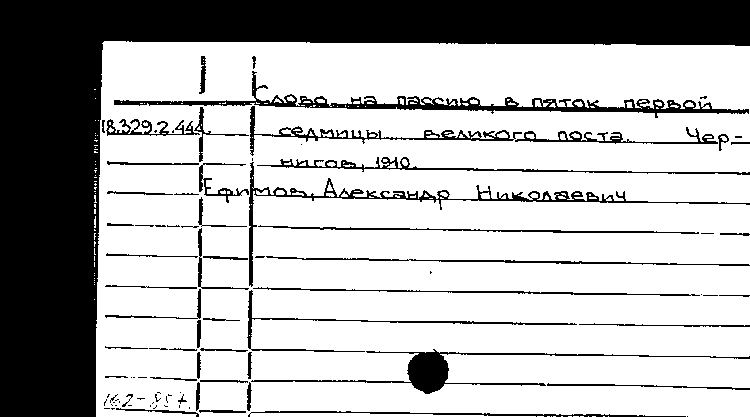 Слово на пассию, в пяток первой
18.329.2.444. седмицы великого поста. Чер-
нигов, 1910.
Ефимов, Александр Николаевич
162-85г.